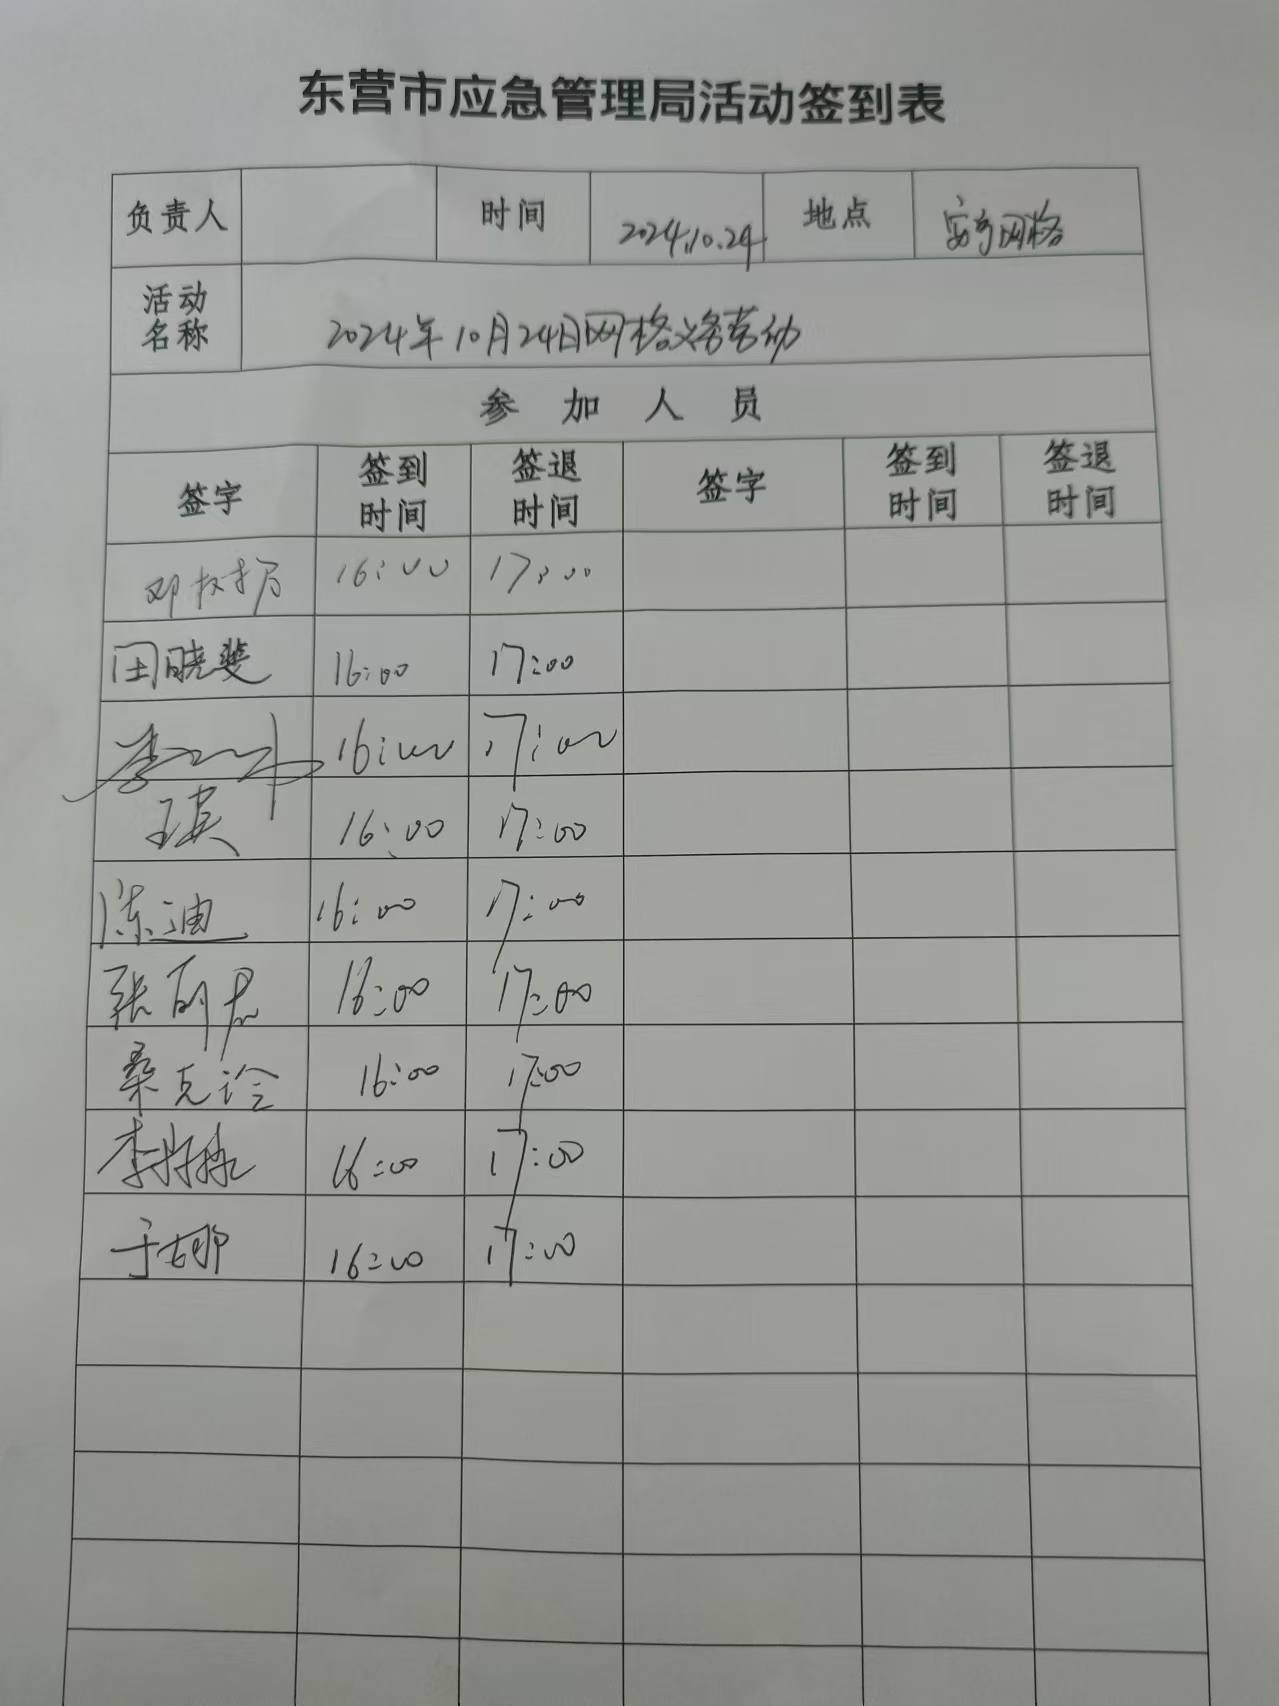 东营市应急管理局活动签到表
负责人 时间 2024.10.24 地点 网格
活动名称 2024年10月24日网格义务劳动
参加人员
签字 签到时间 签退时间 签字 签到时间 签退时间
邓 16:00 17:00
田晓斐 16:00 17:00
李 16:00 17:00
王琪 16:00 17:00
陈迪 16:00 17:00
张 16:00 17:00
桑克 16:00 17:00
李 16:00 17:00
于娜 16:00 17:00